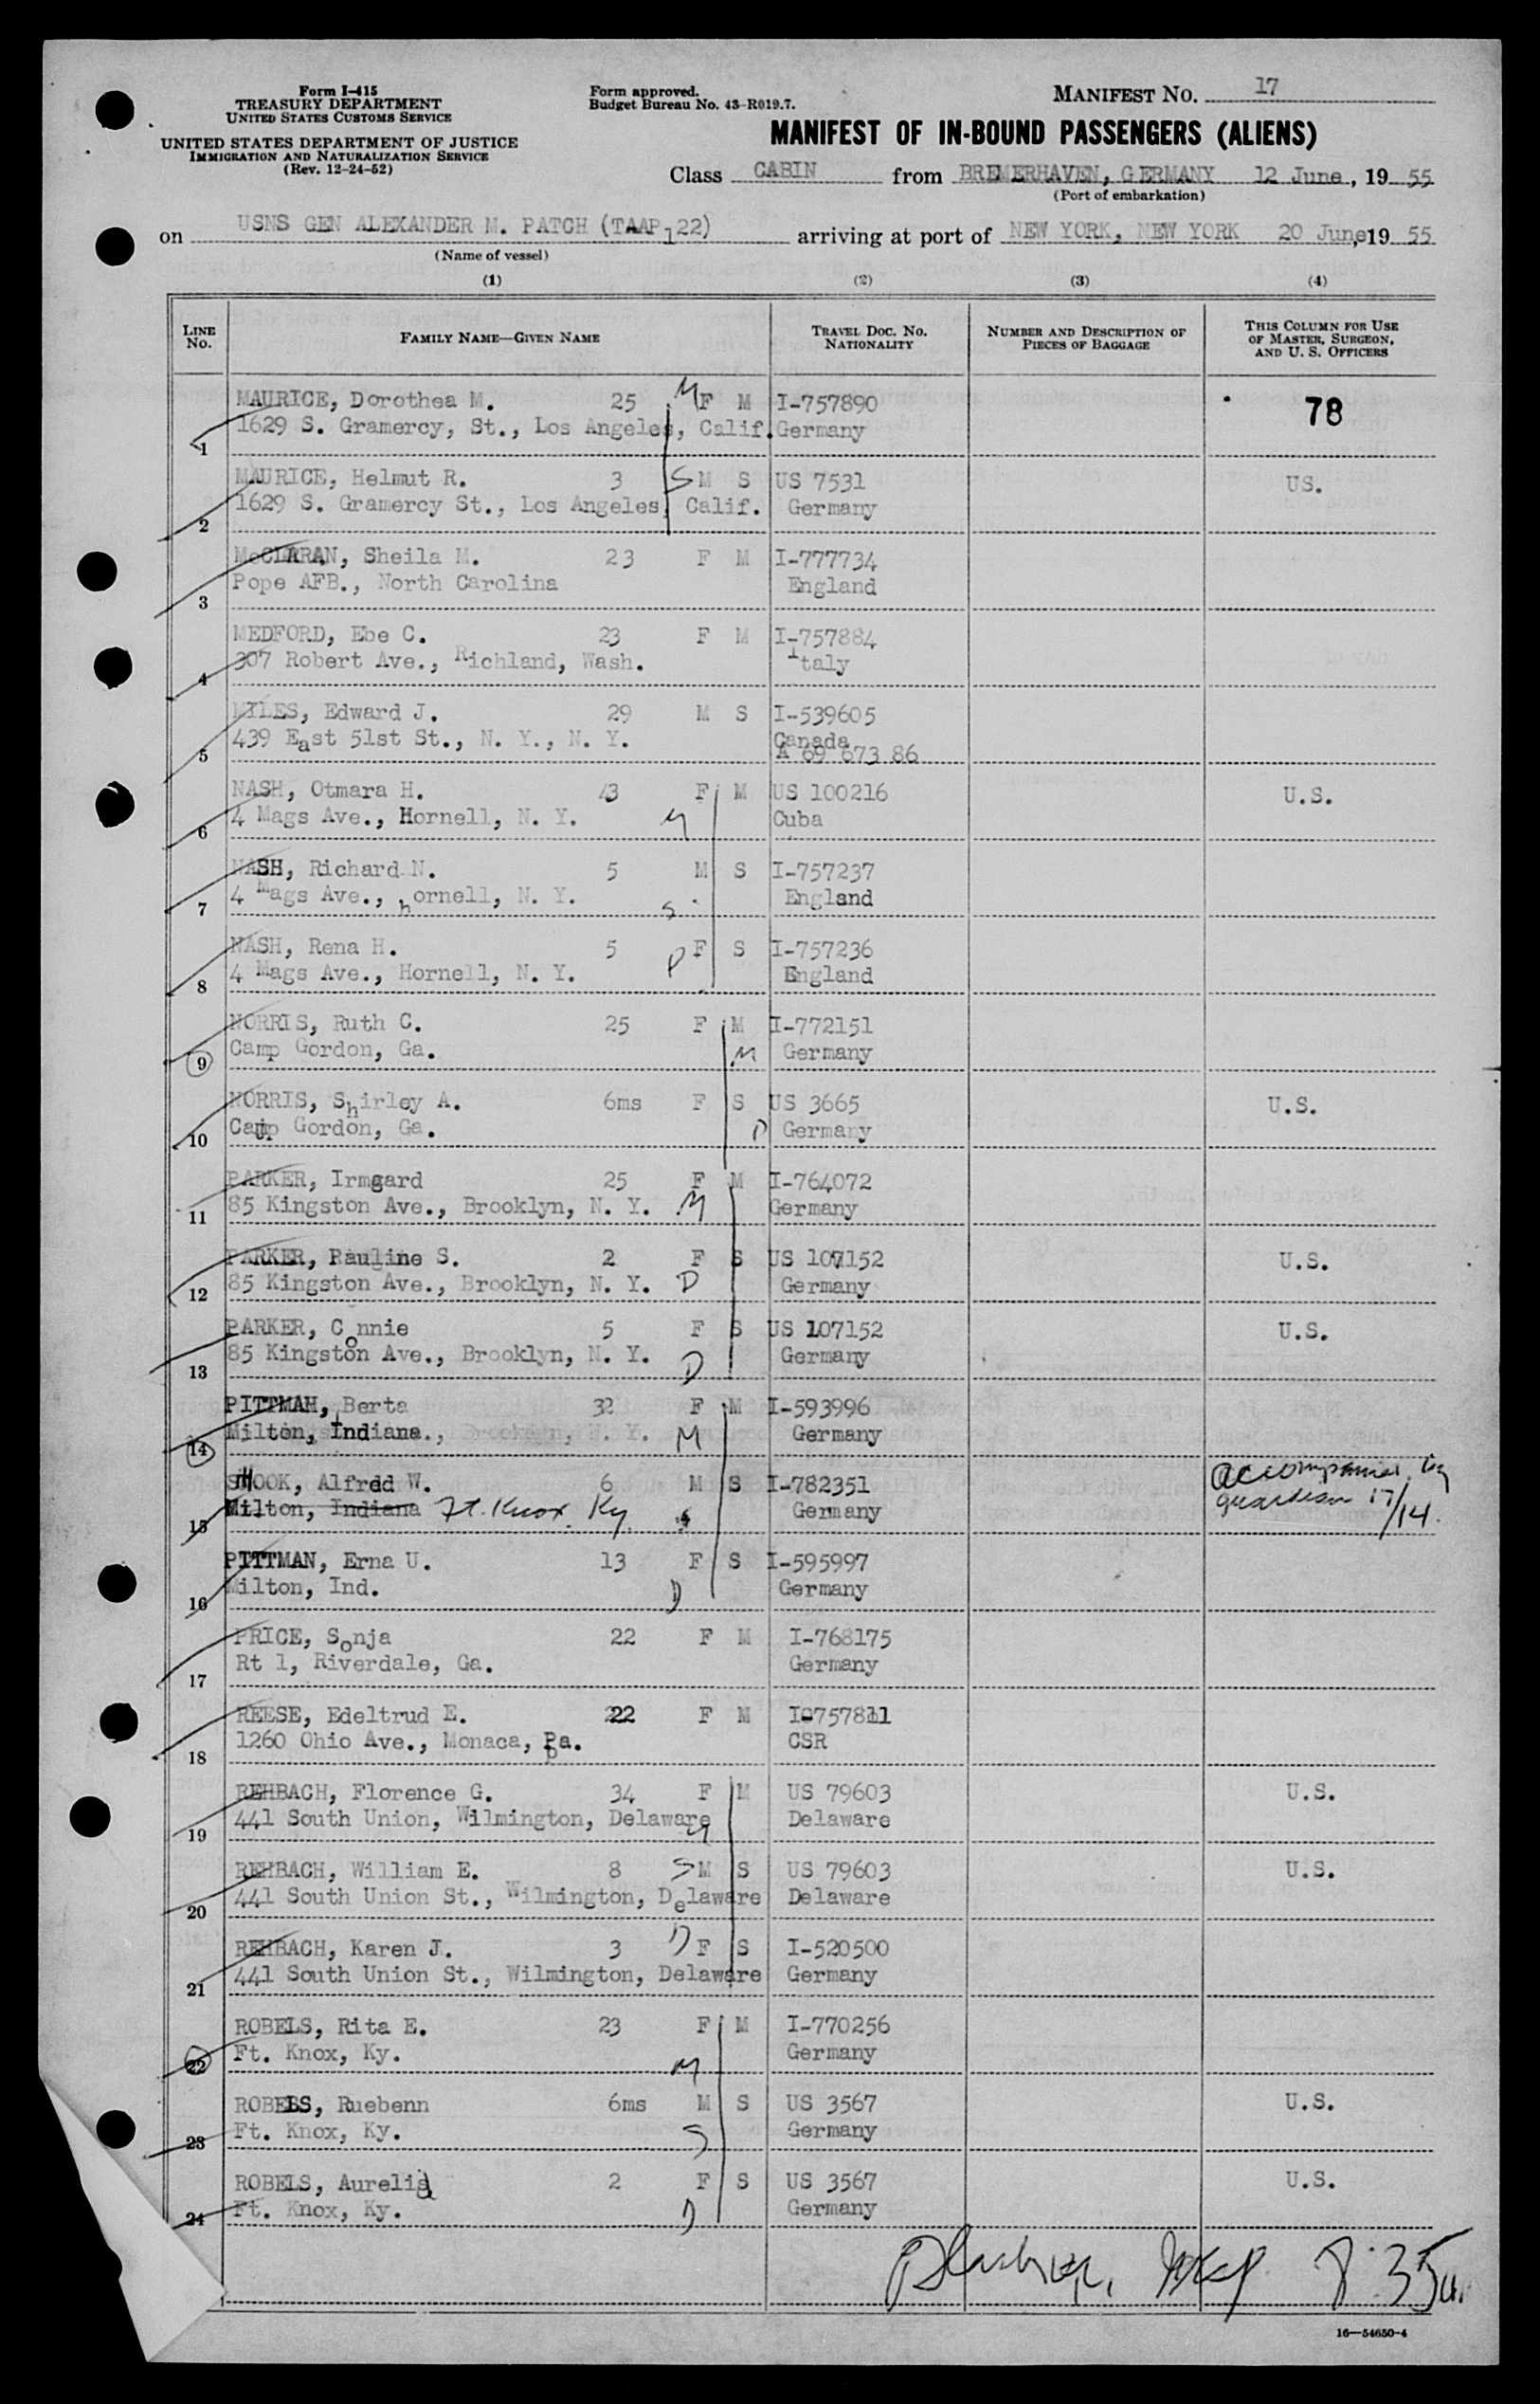 Form I-415
TREASURY DEPARTMENT
UNITED STATES CUSTOMS SERVICE
UNITED STATES DEPARTMENT OF JUSTICE
IMMIGRATION AND NATURALIZATION SERVICE
(Rev. 12-24-52)
Form approved.
Budget Bureau No. 43-R019.7.
MANIFEST NO. 17
MANIFEST OF IN-BOUND PASSENGERS (ALIENS)
Class CABIN from BREMERHAVEN, GERMANY 12 June, 19 55
(Port of embarkation)
on USNS GEN ALEXANDER M. PATCH (TAAP 122) arriving at port of NEW YORK, NEW YORK 20 June, 19 55
(Name of vessel)
(1) (2) (3) (4)
LINE NO. FAMILY NAME—GIVEN NAME TRAVEL DOC. NO. NATIONALITY NUMBER AND DESCRIPTION OF PIECES OF BAGGAGE THIS COLUMN FOR USE OF MASTER, SURGEON, AND U. S. OFFICERS
MAURICE, Dorothea M. 25 M F M I-757890 78
1 1629 S. Gramercy, St., Los Angeles, Calif. Germany
MAURICE, Helmut R. 3 S M S US 7531 US.
2 1629 S. Gramercy St., Los Angeles, Calif. Germany
McCLARAN, Sheila M. 23 F M I-777734
3 Pope AFB., North Carolina England
MEDFORD, Ebe C. 23 F M I-757884
4 307 Robert Ave., Richland, Wash. Italy
MILES, Edward J. 29 M S I-539605
5 439 East 51st St., N. Y., N. Y. Canada
A 69 673 86
NASH, Otmara H. 43 F M US 100216 U.S.
6 4 Mags Ave., Hornell, N. Y. M Cuba
NASH, Richard N. 5 M S I-757237
7 4 Mags Ave., hornell, N. Y. S England
NASH, Rena H. 5 F S I-757236
8 4 Mags Ave., Hornell, N. Y. D England
NORRIS, Ruth C. 25 F M I-772151
9 Camp Gordon, Ga. M Germany
NORRIS, Shirley A. 6ms F S US 3665 U.S.
10 Camp Gordon, Ga. D Germany
PARKER, Irmgard 25 F M I-764072
11 85 Kingston Ave., Brooklyn, N. Y. M Germany
PARKER, Pauline S. 2 F S US 107152 U.S.
12 85 Kingston Ave., Brooklyn, N. Y. D Germany
PARKER, Connie 5 F S US 107152 U.S.
13 85 Kingston Ave., Brooklyn, N. Y. D Germany
PITTMAN, Berta 32 F M I-593996
14 Milton, Indiana., M Germany
SHOOK, Alfred W. 6 M S I-782351 accompanied by
15 Milton, Indiana Ft. Knox. Ky. S Germany guardian 17/14.
PITTMAN, Erna U. 13 F S I-595997
16 Milton, Ind. D Germany
PRICE, Sonja 22 F M I-768175
17 Rt 1, Riverdale, Ga. Germany
REESE, Edeltrud E. 22 F M I-757811
18 1260 Ohio Ave., Monaca, Pa. CSR
REHBACH, Florence G. 34 F M US 79603 U.S.
19 441 South Union, Wilmington, Delaware M Delaware
REHBACH, William E. 8 S M S US 79603 U.S.
20 441 South Union St., Wilmington, Delaware Delaware
REHBACH, Karen J. 3 D F S I-520500
21 441 South Union St., Wilmington, Delaware Germany
ROBELS, Rita E. 23 F M I-770256
22 Ft. Knox, Ky. M Germany
ROBELS, Ruebenn 6ms M S US 3567 U.S.
23 Ft. Knox, Ky. S Germany
ROBELS, Aurelia 2 F S US 3567 U.S.
24 Ft. Knox, Ky. D Germany
16—54650-4